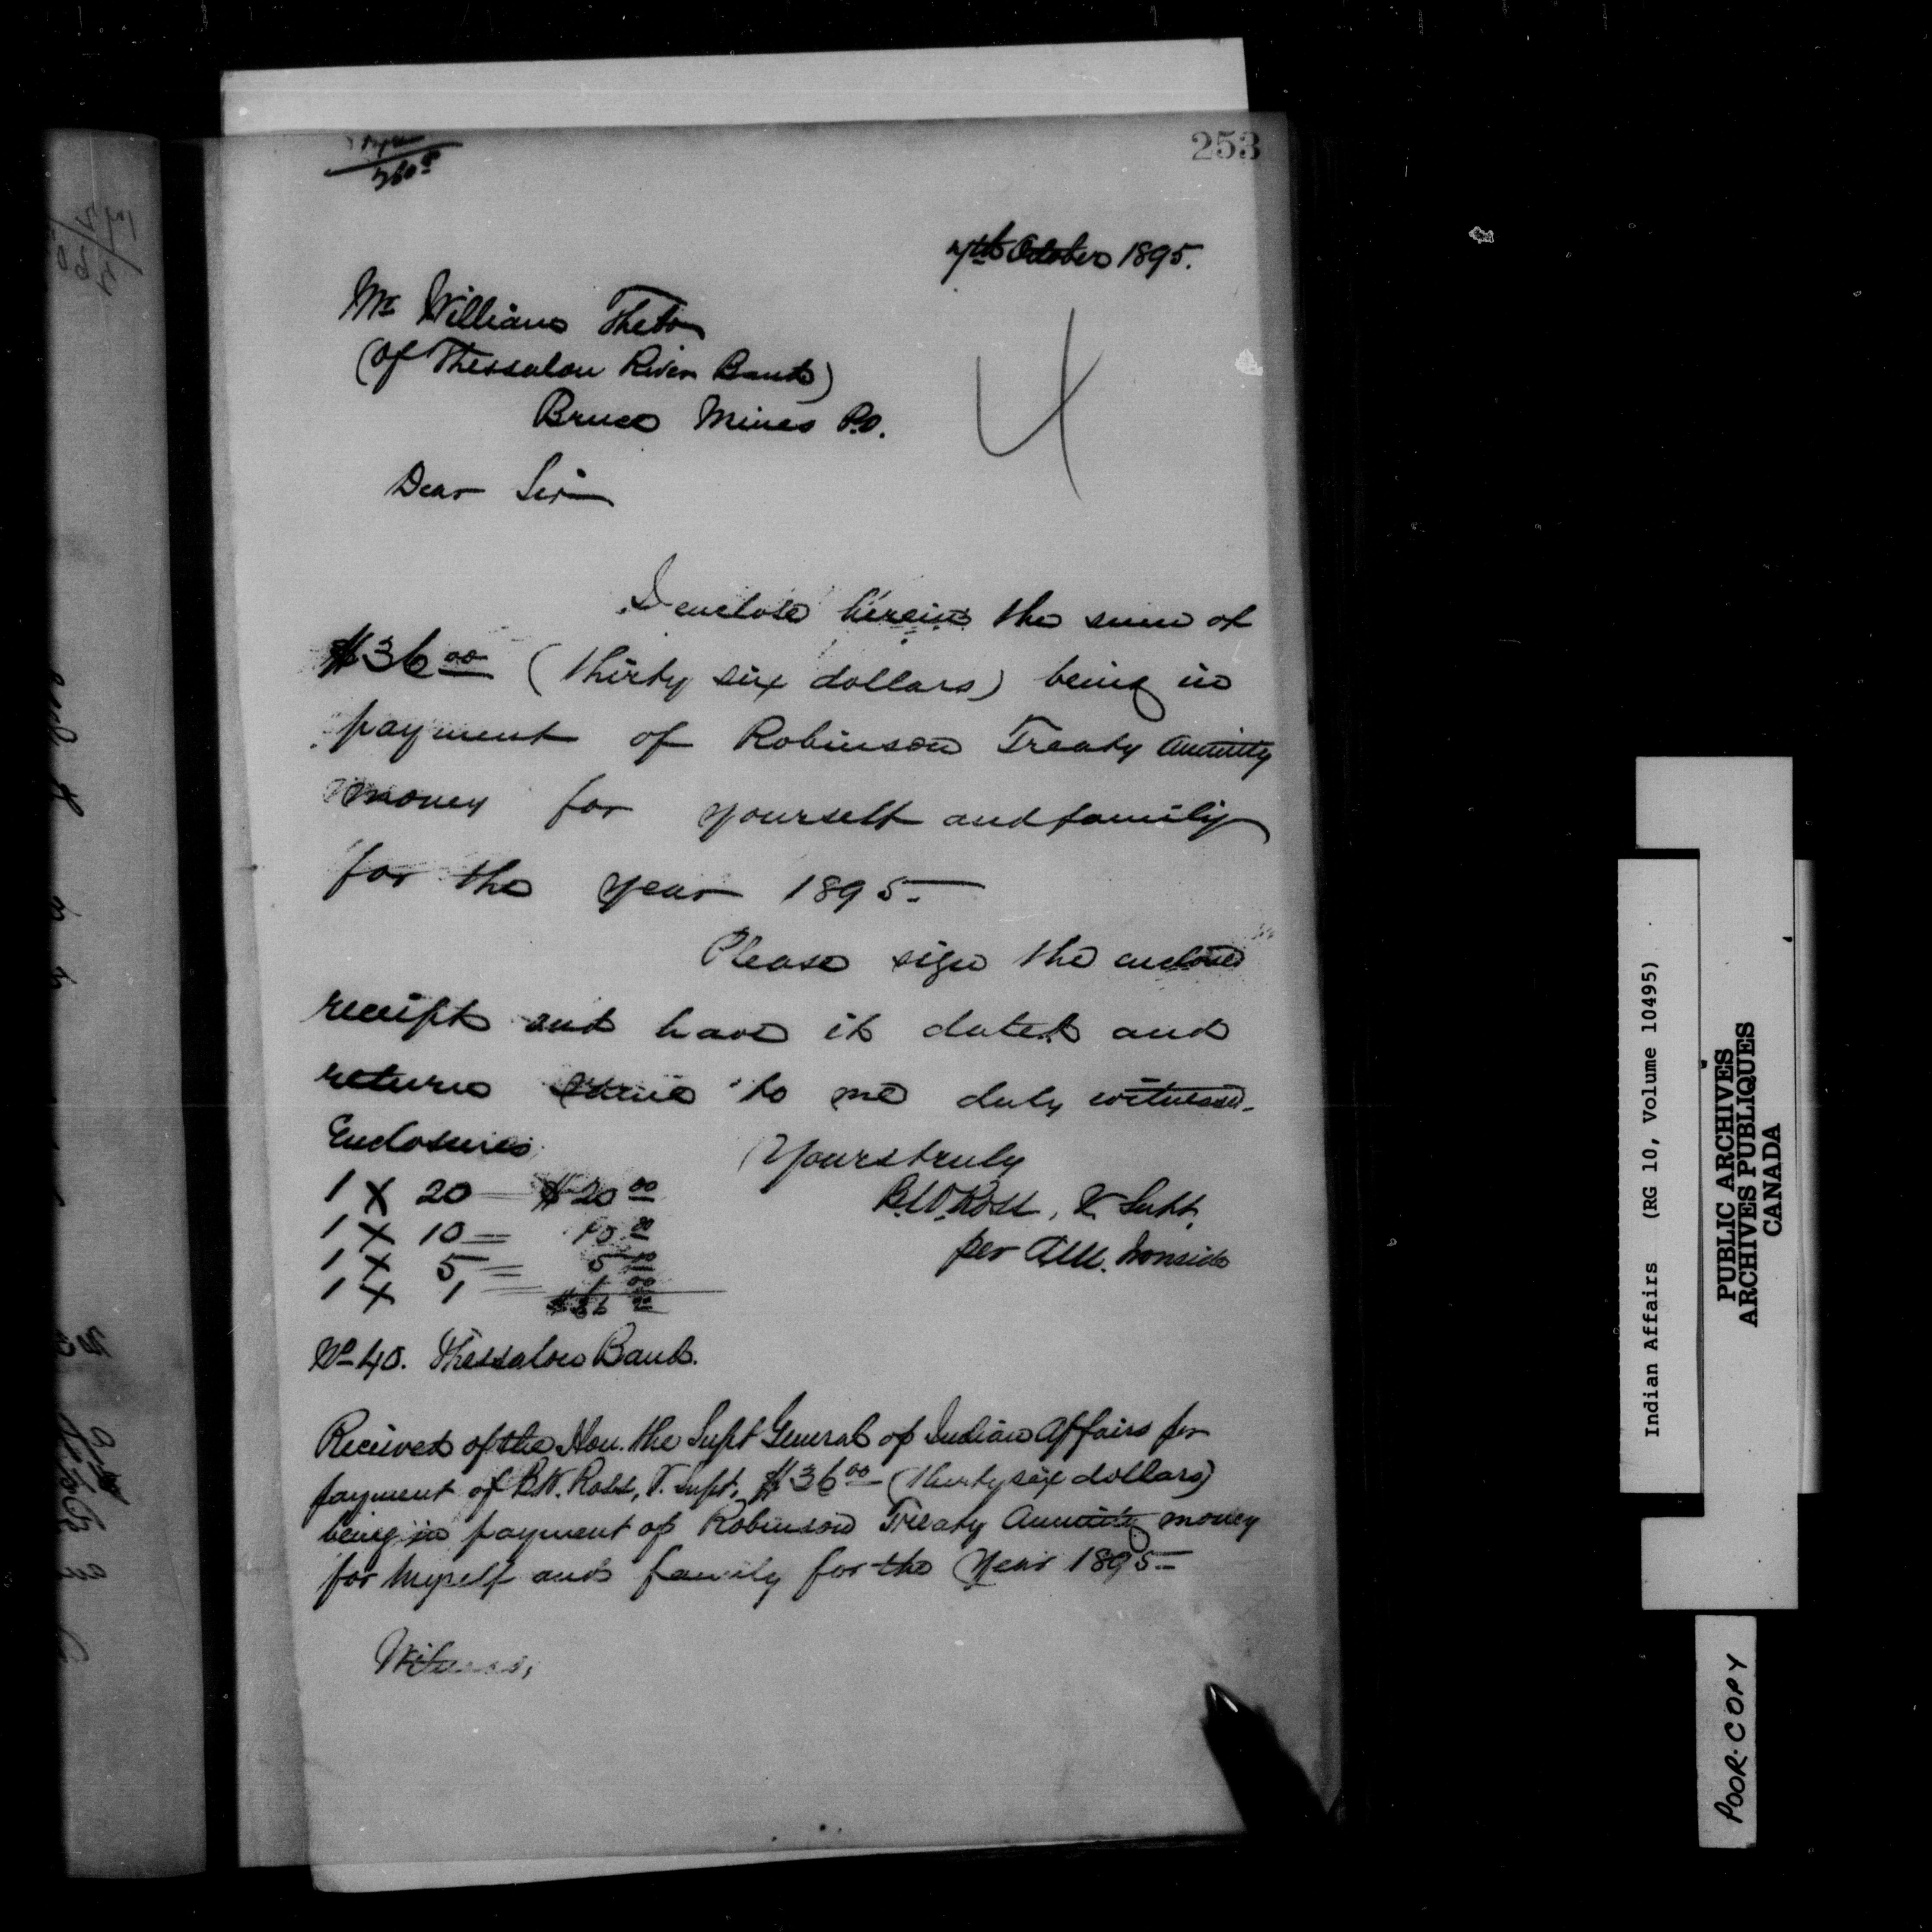 253
7th October 1895.
Mr William
(Of Thessalon River Band)
Bruce Mines P.O.
4
Dear Sir
I enclose herein the sum of
$36.00 (thirty six dollars) being in
payment of Robinson Treaty Annuity
money for yourself and family
for the year 1895.
Please sign the enclosed
receipt and have it dated and
return same to me duly witnessed.
Enclosures
Yours truly
1 X 20 = $20.00
B.W. Ross, V. Supt.
1 X 10 = 10.00
per A.M. Ironside
1 X 5 = 5.00
1 X 1 = 1.00
$36.00
No 40. Thessalon Band.
Received of the Hon. the Supt General of Indian Affairs per
payment of B.W. Ross, V. Supt. $36.00 (thirty six dollars)
being in payment of Robinson Treaty Annuity money
for myself and family for the Year 1895
Witness,
Indian Affairs (RG 10, Volume 10495)
PUBLIC ARCHIVES
ARCHIVES PUBLIQUES
CANADA
POOR COPY